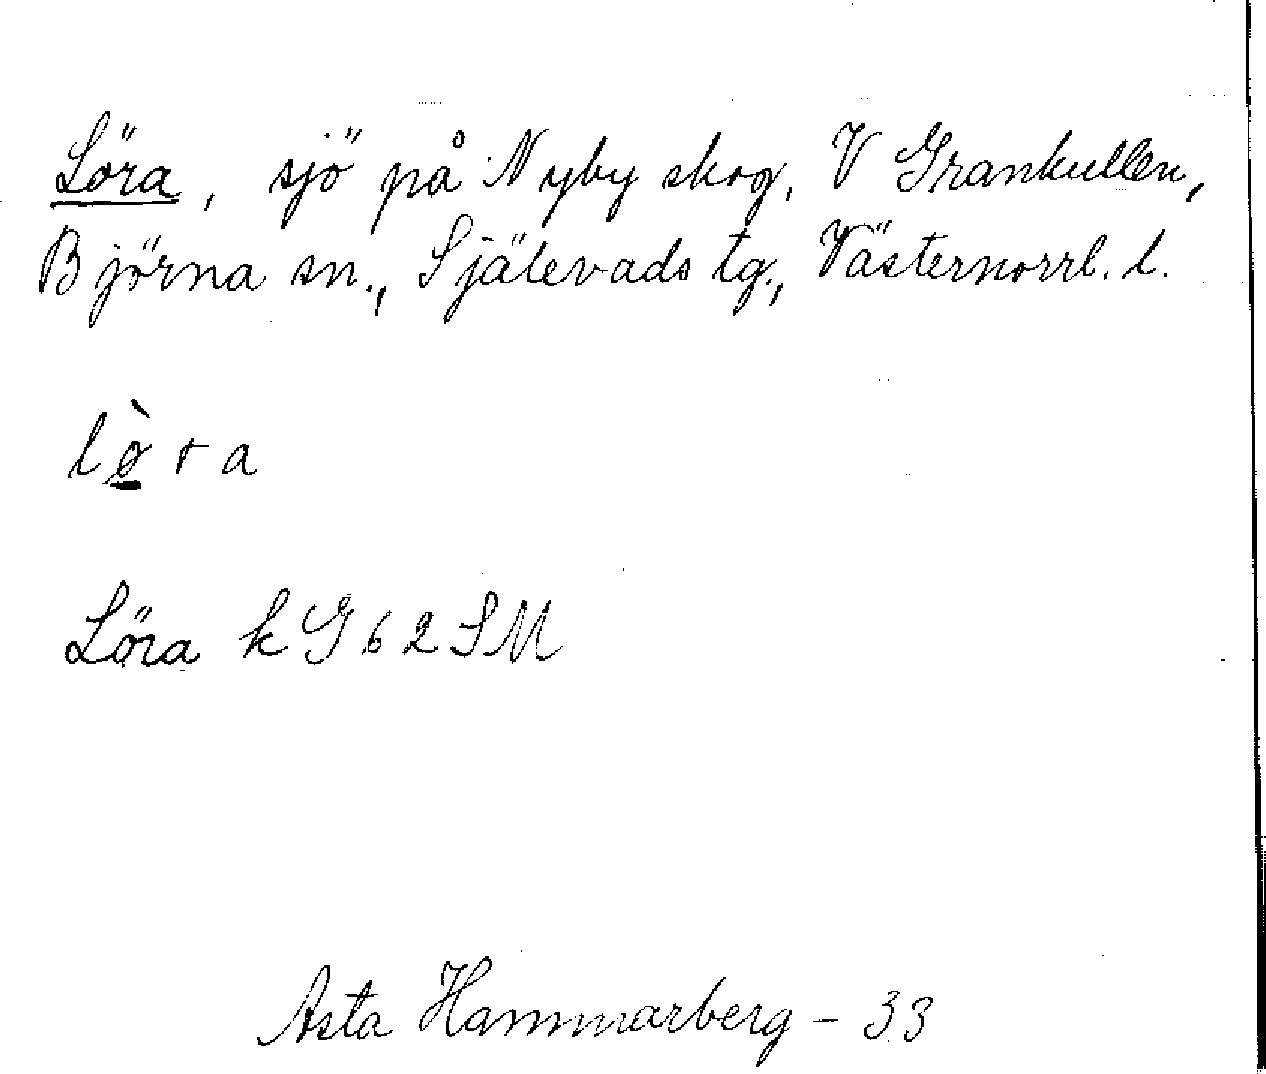 Löra, sjö på Nyby skog, V Grankullen,
Björna sn., Själevads tg., Västernorrl. l.
lø̱̀ra
Löra k G 62 SM
Asta Hammarberg - 33